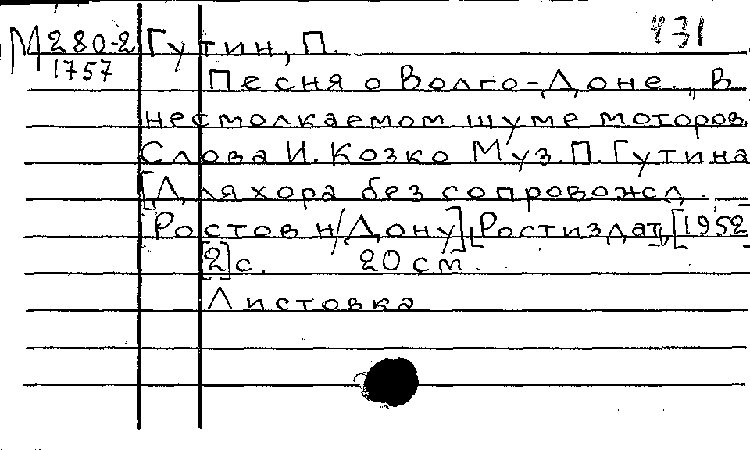 М 280-2 Гутин, П. 931
1757
Песня о Волго-Доне. „В
несмолкаемом шуме моторов
Слова И. Козко Муз. П. Гутина
[Для хора без сопровожд.
[Ростов н/Дону], Ростиздат, [1952
[2] с. 20 см.
Листовка